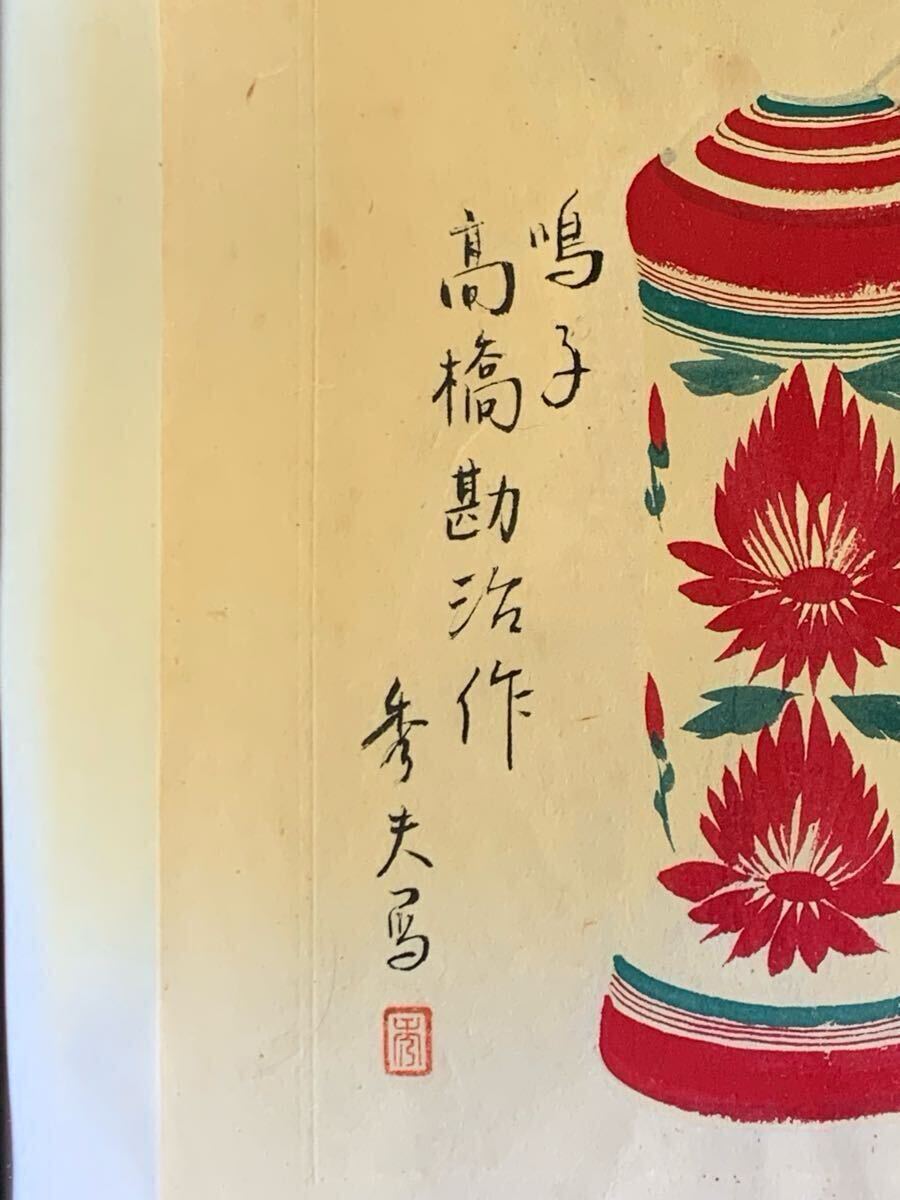 鳴子
高橋勘治作
秀夫写
秀